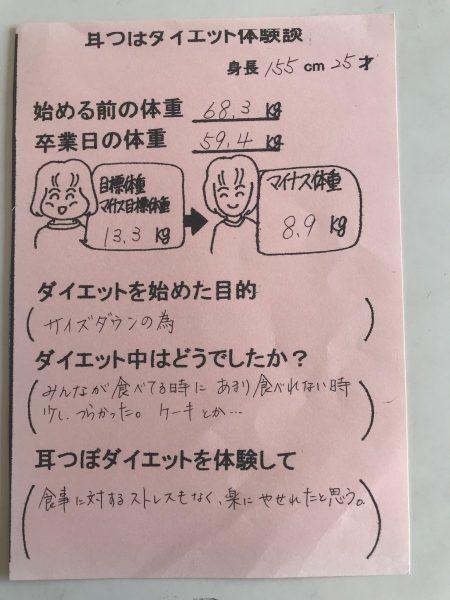 耳つぼダイエット体験談
身長 155 cm 25才
始める前の体重 68.3 kg
卒業日の体重 59.4 kg
目標体重
マイナス目標体重
13.3 kg
マイナス体重
8.9 kg
ダイエットを始めた目的
サイズダウンの為
ダイエット中はどうでしたか？
みんなが食べてる時に あまり食べれない時
少し つらかった。 ケーキとか…
耳つぼダイエットを体験して
食事に対するストレスもなく、楽に やせれたと思う。